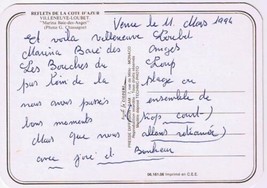 REFLETS DE LA COTE D'AZUR
VILLENEUVE-LOUBET
"Marina Baie-des-Anges"
Vence le 11 Mars 1994
Et voilà Villeneuve Loubet
Marina Baie des Anges
Les Bouches du Loup
pas loin de la plage ou
nous avons passé un ensemble de
bons moments (trop court)
Mais que nous allons retrouver
avec joie et Bonheur